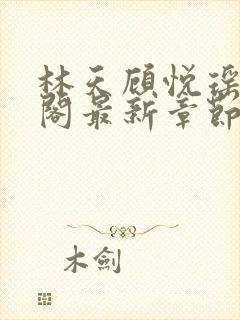 林天顾悦瑶
阁最新章节
木劍